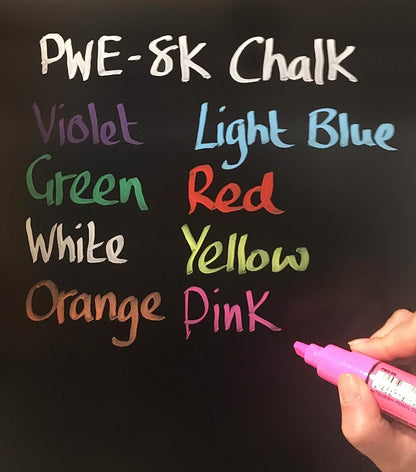 PWE-8K Chalk
Violet Light Blue
Green Red
White Yellow
Orange Pink